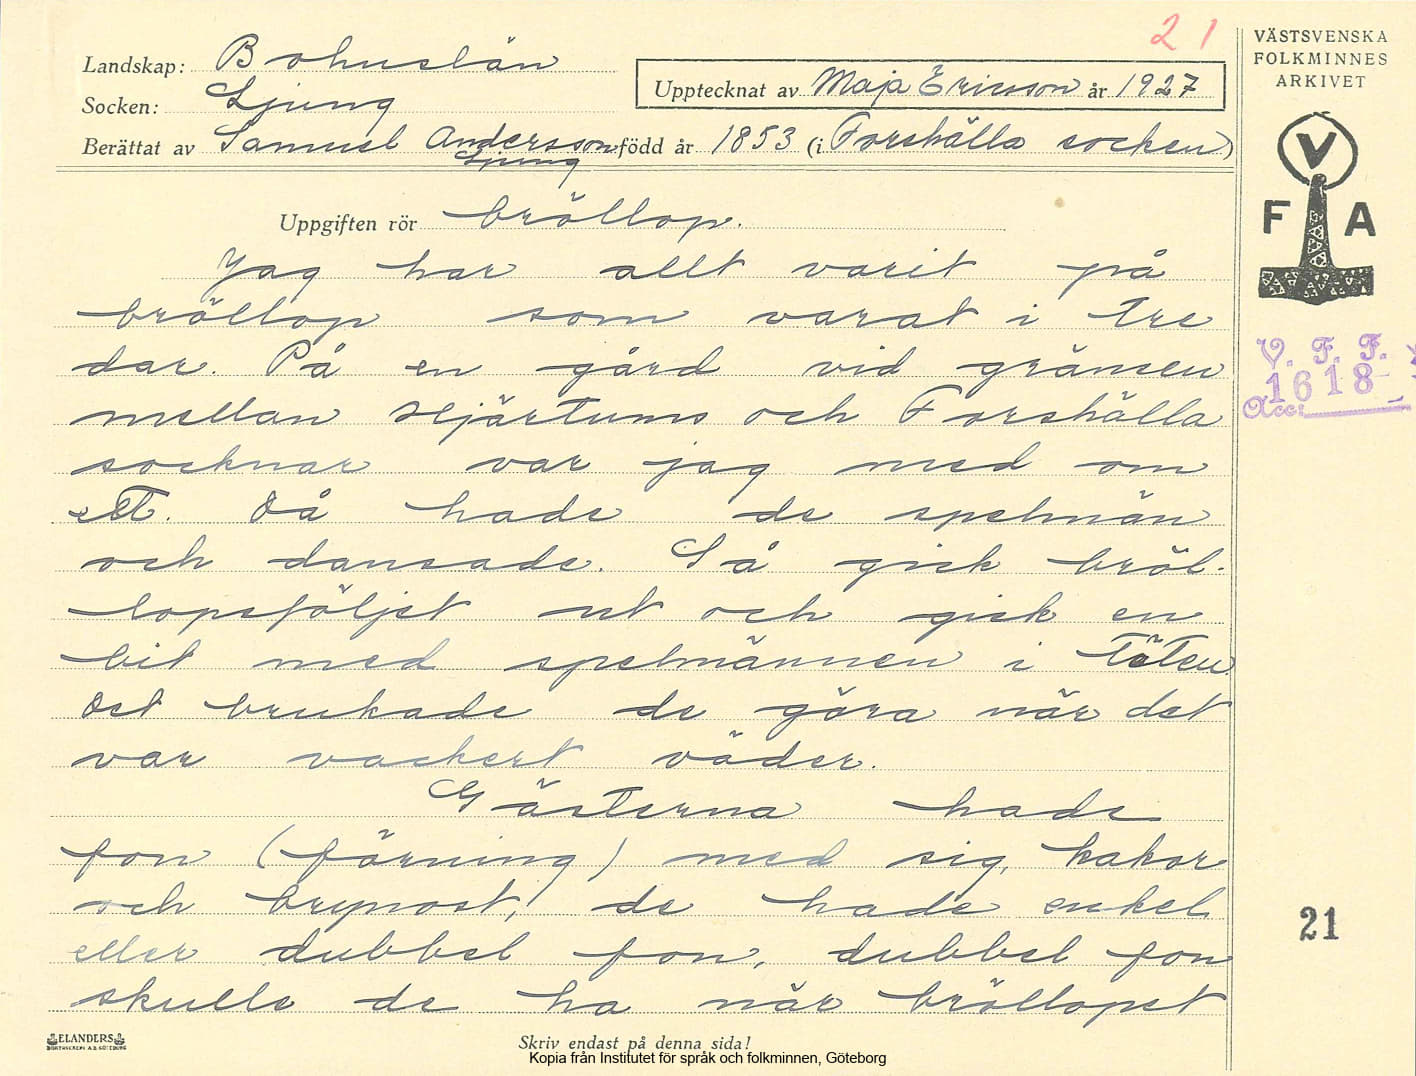 21
VÄSTSVENSKA
FOLKMINNES
ARKIVET
Landskap: Bohuslän
Upptecknat av Maja Ericsson år 1927
Socken: Ljung
Berättat av Samuel Andersson född år 1853 (i Forshälla socken)
Ljung
V
F A
Uppgiften rör bröllop.
Jag har allt varit på
bröllop som varat i tre
dar. På en gård vid gränsen
mellan Hjärtums och Forshälla
socknar var jag med om
ett. Då hade de spelmän
och dansade. Så gick bröl-
lopsföljet ut och gick en
bit med spelmännen i täten
Det brukade de göra när det
var vackert väder.
Gästerna hade
fon (förning) med sig, kakor
och brynost, de hade enkel
eller dubbel fon, dubbel fon
skulle de ha når bröllopet
V. F. F.
1618
Acc:
21
ELANDERS
BOKTRYCKERI A.B. GÖTEBORG
Skriv endast på denna sida!
Kopia från Institutet för språk och folkminnen, Göteborg